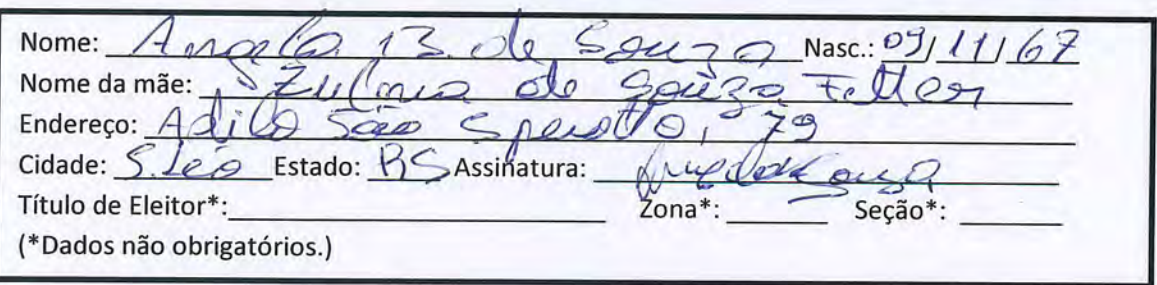 Nome: Angela B. de Souza Nasc.: 09/11/67
Nome da mãe: Zulmia de Souza Feller
Endereço: Adilo São Sperotto, 79
Cidade: S. Leo Estado: RS Assinatura: Angela Souza
Título de Eleitor*: Zona*: Seção*:
(*Dados não obrigatórios.)